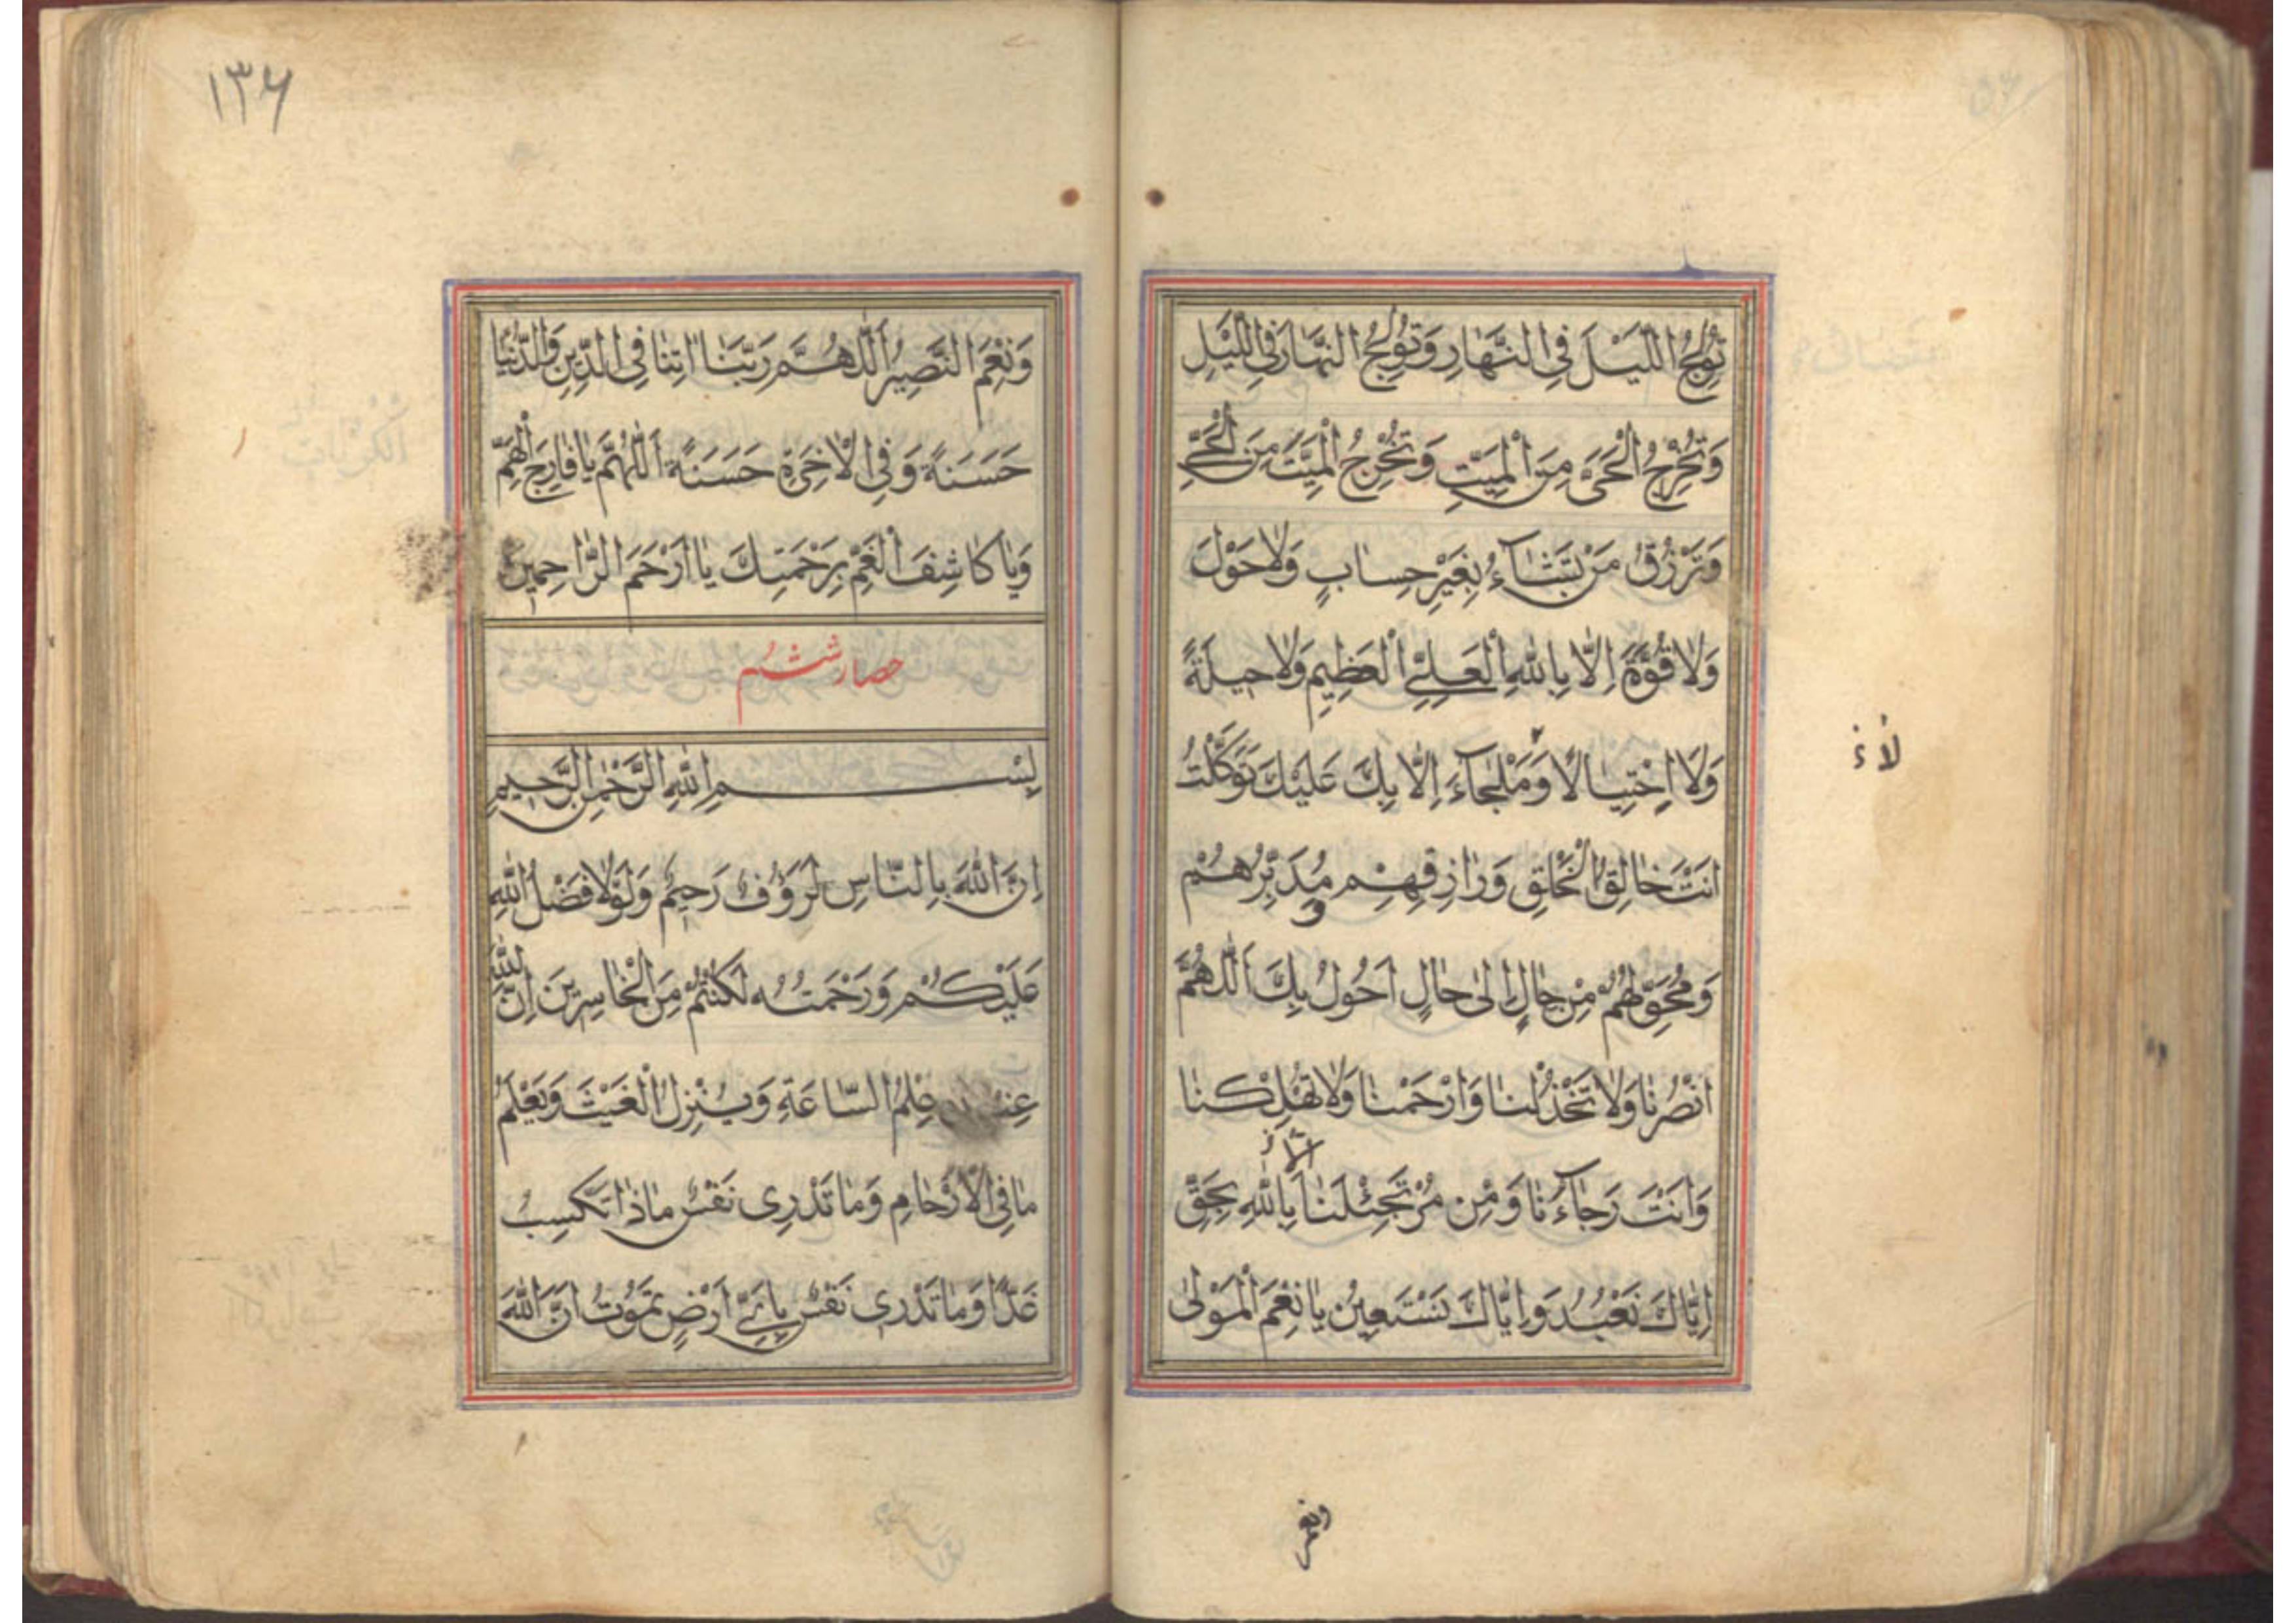 تُولِجُ اللَّيْلَ فِي النَّهَارِ وَتُولِجُ النَّهَارَ فِي اللَّيْلِ
وَتُخْرِجُ الْحَيَّ مِنَ الْمَيِّتِ وَتُخْرِجُ الْمَيِّتَ مِنَ الْحَيِّ
وَتَرْزُقُ مَنْ تَشَاءُ بِغَيْرِ حِسَابٍ وَلَا حَوْلَ
وَلَا قُوَّةَ اِلَّا بِاللهِ الْعَلِيِّ الْعَظِيمِ وَلَا حِيلَةً
وَلَا اِخْتِيَالًا وَمَلْجَآءَ اِلَّا بِكَ عَلَيْكَ تَوَكَّلْتُ
لاء
اَنْتَ خَالِقُ الْخَلْقِ وَرَازِقِهِمْ وَ مُدَبِّرُهُمْ
وَمُحَوِّلُهُمْ مِنْ حَالٍ اِلَى حَالٍ اَحُولُ بِكَ اَللّٰهُمَّ
انْصُرْنَا وَلَا تَخْذُلْنَا وَارْحَمْنَا وَلَا تُهْلِكْنَا
وَاَنْتَ رَجَاؤُنَا وَمِنْ لَنَا بِاللهِ بِحَقِّ
اِيَّاكَ نَعْبُدُ وَاِيَّاكَ نَسْتَعِينُ يَا نِعْمَ الْمَوْلَى
ونعم
١٣۶
وَنِعْمَ النَّصِيرُ اَللّٰهُمَّ رَبَّنَا اٰتِنَا فِي الدِّينِ وَالدُّنْيَا
حَسَنَةً وَفِي الْاٰخِرَةِ حَسَنَةً اَللّٰهُمَّ يَا فَارِجَ الْهَمِّ
وَيَا كَاشِفَ الْغَمِّ بِرَحْمَتِكَ يَا اَرْحَمَ الرَّاحِمِينَ
حصار ششم
بِسْمِ اللهِ الرَّحْمٰنِ الرَّحِيمِ
اِنَّ اللهَ بِالنَّاسِ لَرَؤُفٌ رَحِيمٌ وَلَوْلَا فَضْلُ اللهِ
عَلَيْكُمْ وَرَحْمَتُهُ لَكُنْتُمْ مِنَ الْخَاسِرِينَ اِنَّ اللهَ
عِنْدَهُ عِلْمُ السَّاعَةِ وَيُنْزِلُ الْغَيْثَ وَيَعْلَمُ
مَا فِي الْاَرْحَامِ وَمَا تَدْرِي نَفْسٌ مَاذَا تَكْسِبُ
غَدًا وَمَا تَدْرِي نَفْسٌ بِاَيِّ اَرْضٍ تَمُوتُ اِنَّ اللهَ